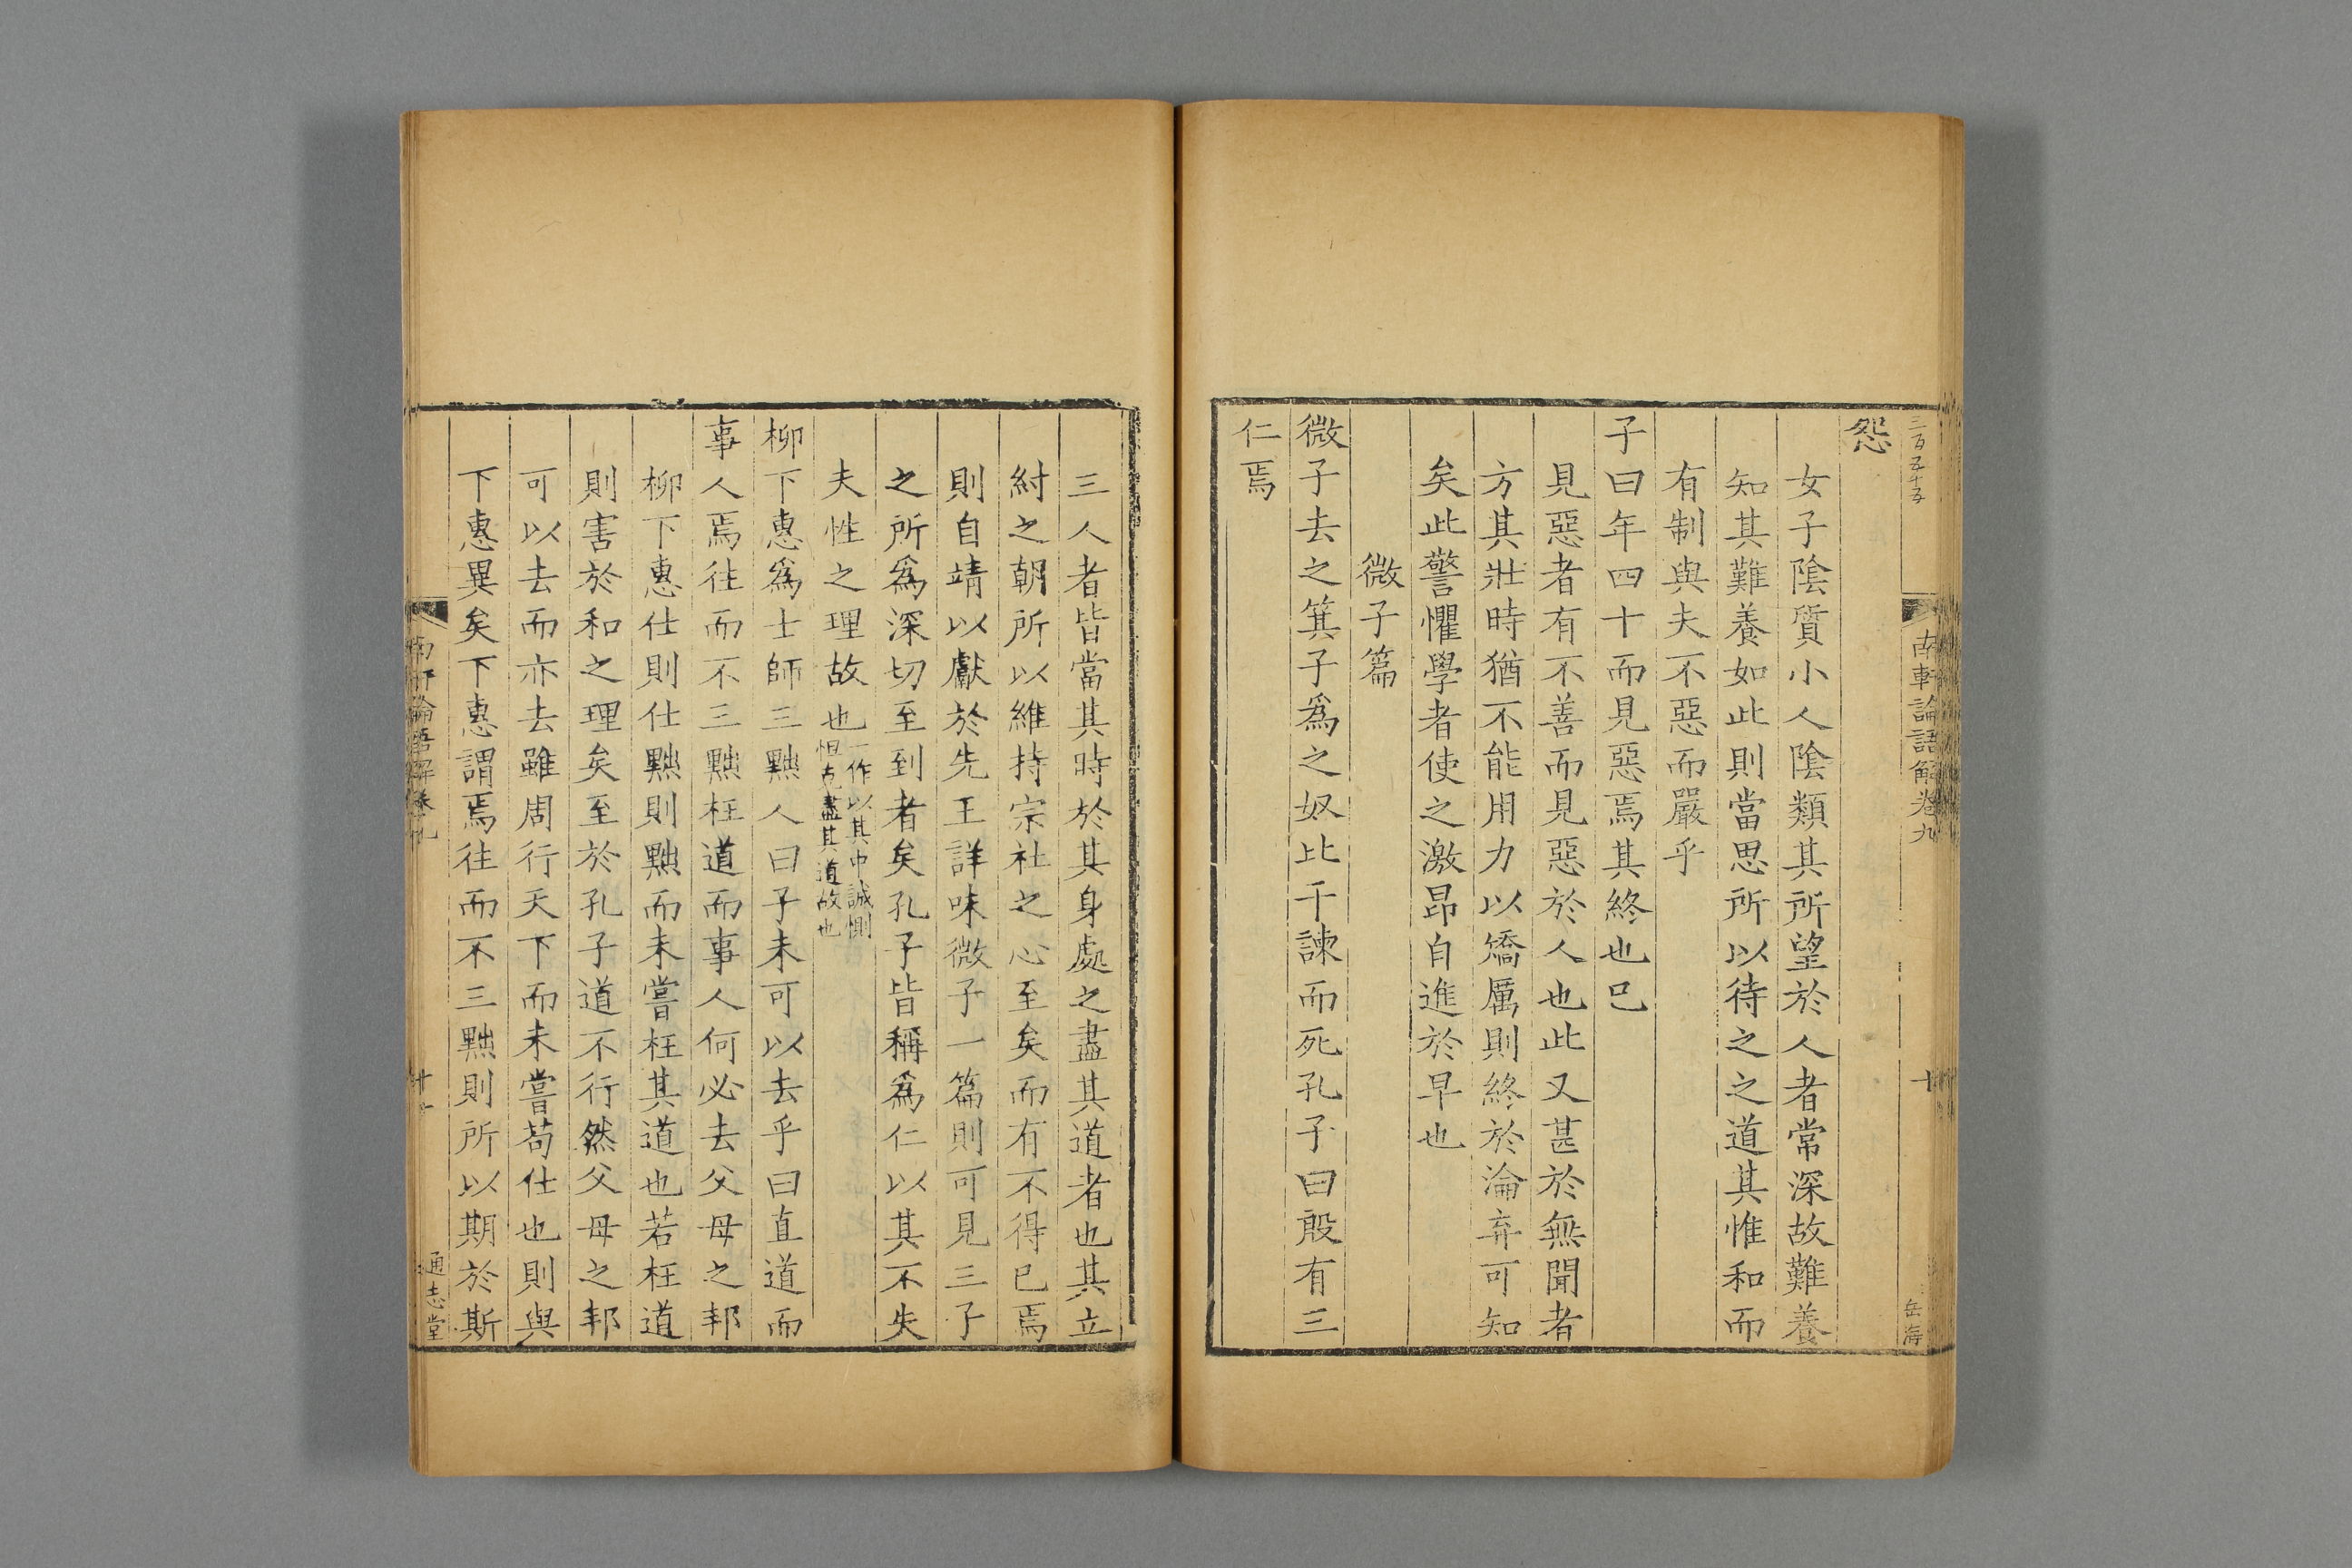 三百五十五
南軒論語解卷九
十
岳海
怨
女子陰質小人陰類其所望於人者常深故難養
知其難養如此則當思所以待之之道其惟和而
有制與夫不惡而嚴乎
子曰年四十而見惡焉其終也已
見惡者有不善而見惡於人也此又甚於無聞者
方其壯時猶不能用力以矯厲則終於淪弃可知
矣此警懼學者使之激昂自進於早也
微子篇
微子去之箕子爲之奴比干諫而死孔子曰殷有三
仁焉
三人者皆當其時於其身處之盡其道者也其立
紂之朝所以維持宗社之心至矣而有不得已焉
則自靖以獻於先王詳味微子一篇則可見三子
之所爲深切至到者矣孔子皆稱爲仁以其不失
夫性之理故也一作以其中誠惻
怛克盡其道故也
柳下惠爲士師三黜人曰子未可以去乎曰直道而
事人焉往而不三黜枉道而事人何必去父母之邦
柳下惠仕則仕黜則黜而未嘗枉其道也若枉道
則害於和之理矣至於孔子道不行然父母之邦
可以去而亦去雖周行天下而未嘗苟仕也則與
下惠異矣下惠謂焉往而不三黜則所以期於斯
南軒論語解卷九
十一
通志堂